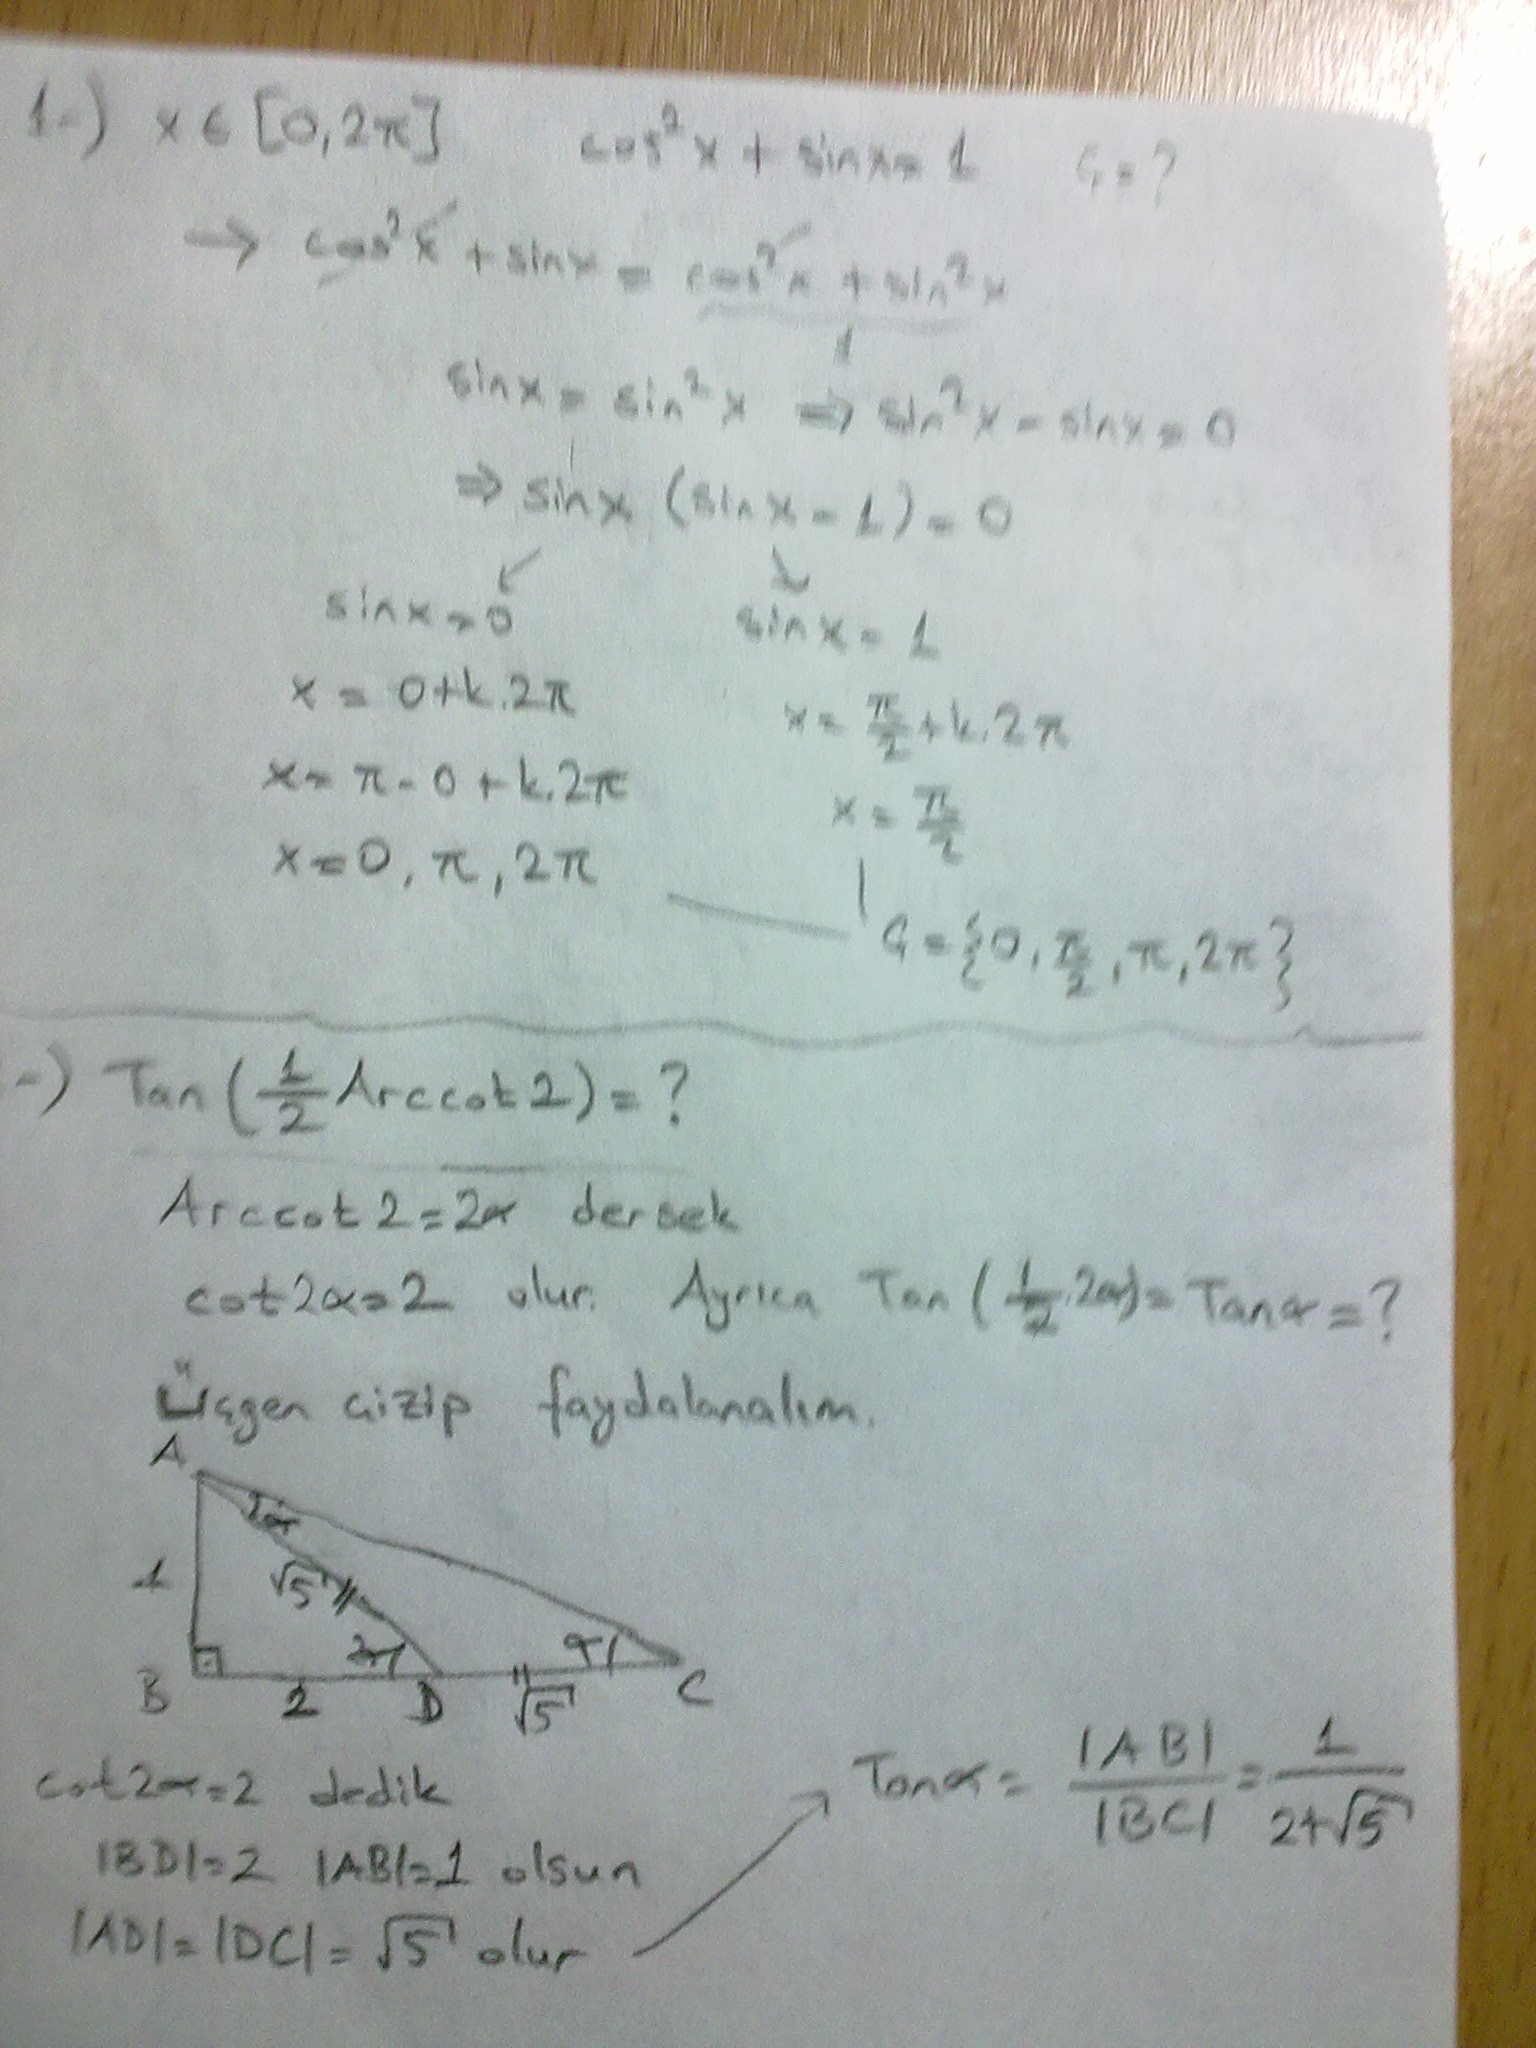 1-) x ∈ [0, 2π] cos²x + sinx = 1 Ç = ?
→ cos²x + sinx = cos²x + sin²x
1
sinx = sin²x ⇒ sin²x - sinx = 0
⇒ sinx (sinx - 1) = 0
sinx = 0 sinx = 1
x = 0 + k.2π x = π/2 + k.2π
x = π - 0 + k.2π x = π/2
x = 0, π, 2π
Ç = {0, π/2, π, 2π}
-) Tan (1/2 Arccot 2) = ?
Arccot 2 = 2α dersek
cot2α = 2 olur. Ayrıca Tan (1/2 . 2α) = Tanα = ?
Üçgen çizip faydalanalım.
A
α
1 √5
2α α
B 2 D √5 C
cot2α = 2 dedik Tanα = |AB|/|BC| = 1/(2+√5)
|BD| = 2 |AB| = 1 olsun
|AD| = |DC| = √5 olur